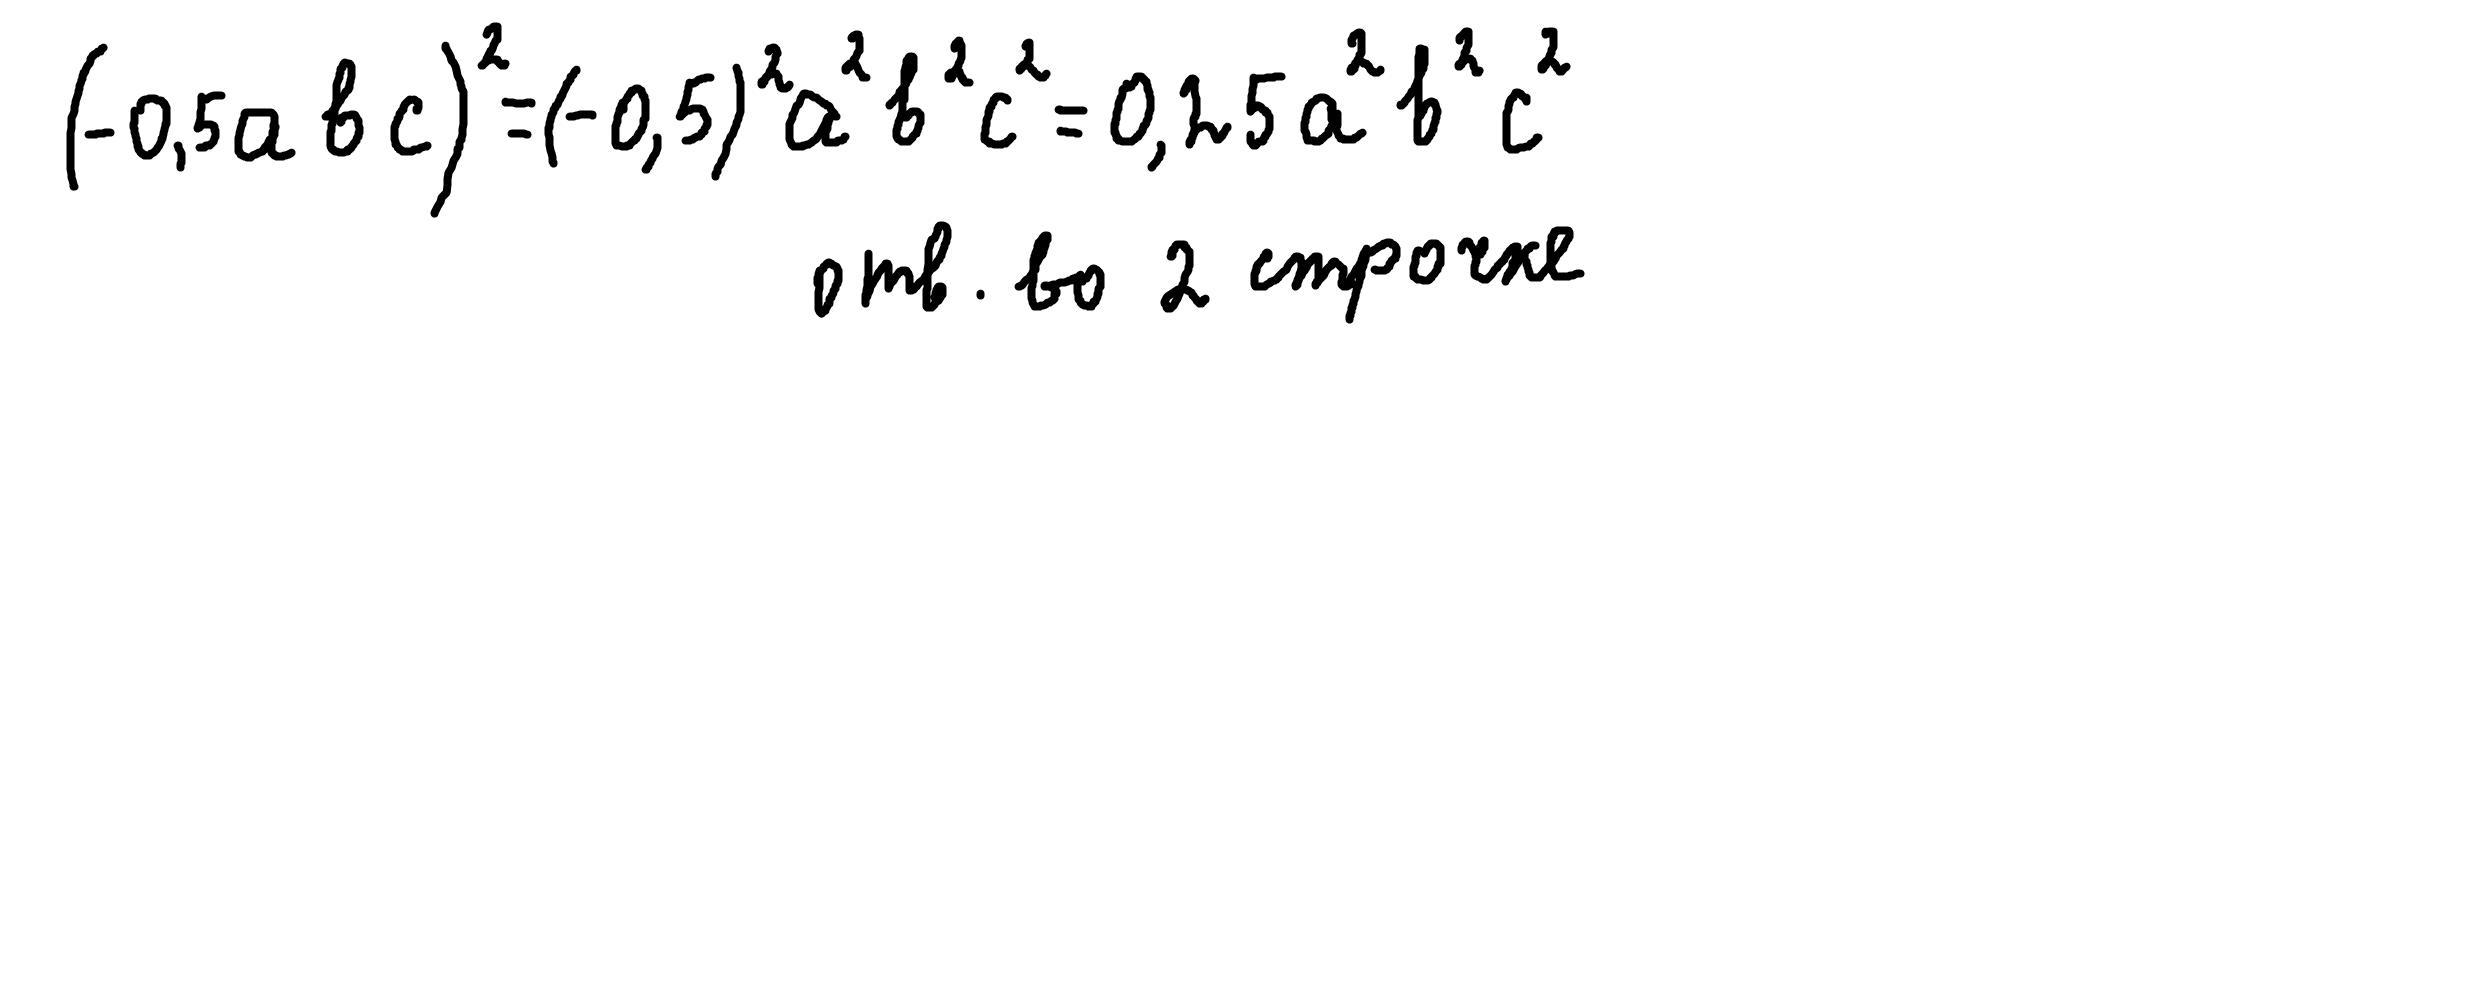 (-0,5abc)²=(-0,5)²a²b²c²=0,25a²b²c²
отв. во 2 строчке